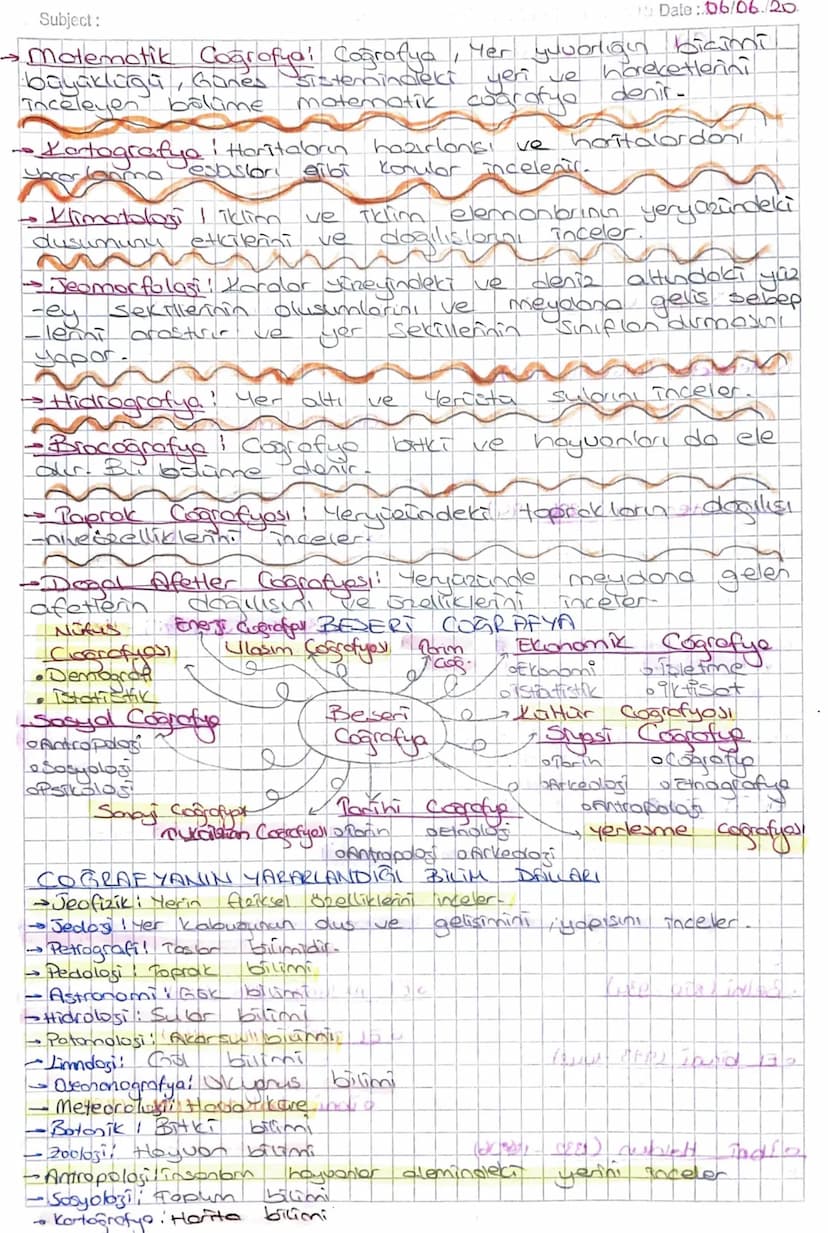 Subject :
Date : 06/06.20
→ Matematik Coğrafya: Coğrafya, Yer yuvarlığın biçimi
büyüklüğü, Güneş sistemindeki yeri ve hareketlerini
inceleyen bölüme matematik coğrafya denir.
→ Kartografya: Haritaların hazırlanışı ve haritalardan
yararlanma esasları gibi konular incelenir.
→ Klimatoloji: İklim ve iklim elemanlarının yeryüzündeki
etkilerini ve dağılışlarını inceler.
→ Jeomorfoloji: Karalar yüzeyindeki ve deniz altındaki yüz
-ey şekillerinin oluşumlarını ve meydana geliş sebep
-lerini araştırır ve yer şekillerinin sınıflandırmasını
yapar.
→ Hidrografya: Yer altı ve Yerüstü sularını inceler.
→ Biocoğrafya: Coğrafya bitki ve hayvanları da ele
alır. Bu bölüme denir.
→ Toprak Coğrafyası: Yeryüzündeki toprakların dağılışı
inceler.
→ Doğal Afetler Coğrafyası: Yeryüzünde meydana gelen
afetlerin dağılışını ve özelliklerini inceler.
BEŞERİ COĞRAFYA
Nüfus Coğrafyası
• Demografi
• İstatistik
Enerji Coğrafyası
Ulaşım Coğrafyası
Tarım Coğ.
Ekonomik Coğrafya
o Ekonomi o İşletme
o İstatistik o İktisat
Beşeri
Coğrafya
→ Kültür Coğrafyası
Sosyal Coğrafya
o Antropoloji
o Sosyoloji
o Psikoloji
Siyasi Coğrafya
o Tarih o Coğrafya
o Arkeoloji o Etnografya
o Antropoloji
Sanayi Coğrafya
Coğrafyası
Tarihi Coğrafya
o Tarih o Etnoloji
o Antropoloji o Arkeoloji
yerleşme coğrafyası
COĞRAFYANIN YARARLANDIĞI BİLİM DALLARI
→ Jeofizik: Yerin fiziksel özelliklerini inceler.
→ Jeoloji: Yer kabuğunun ve gelişimini, yapısını inceler.
→ Petrografi: Taşlar bilimidir.
→ Pedoloji: Toprak bilimi
→ Astronomi: Gök bilimi
→ Hidroloji: Sular bilimi
→ Potamoloji: Akarsu bilimi
→ Limnoloji: Göl bilimi
→ Okyanus bilimi
→ Meteoroloji: Hava küre
→ Botanik: Bitki bilimi
→ Zooloji: Hayvan bilimi
→ Antropoloji: İnsanların hayvanlar alemindeki yerini inceler
→ Sosyoloji: Toplum bilimi
→ Kartoğrafya: Harita bilimi